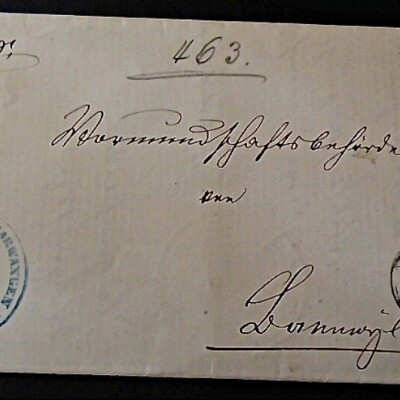 463.
Vormundschaftsbehörde
von
Bannwyl
ARWANGEN